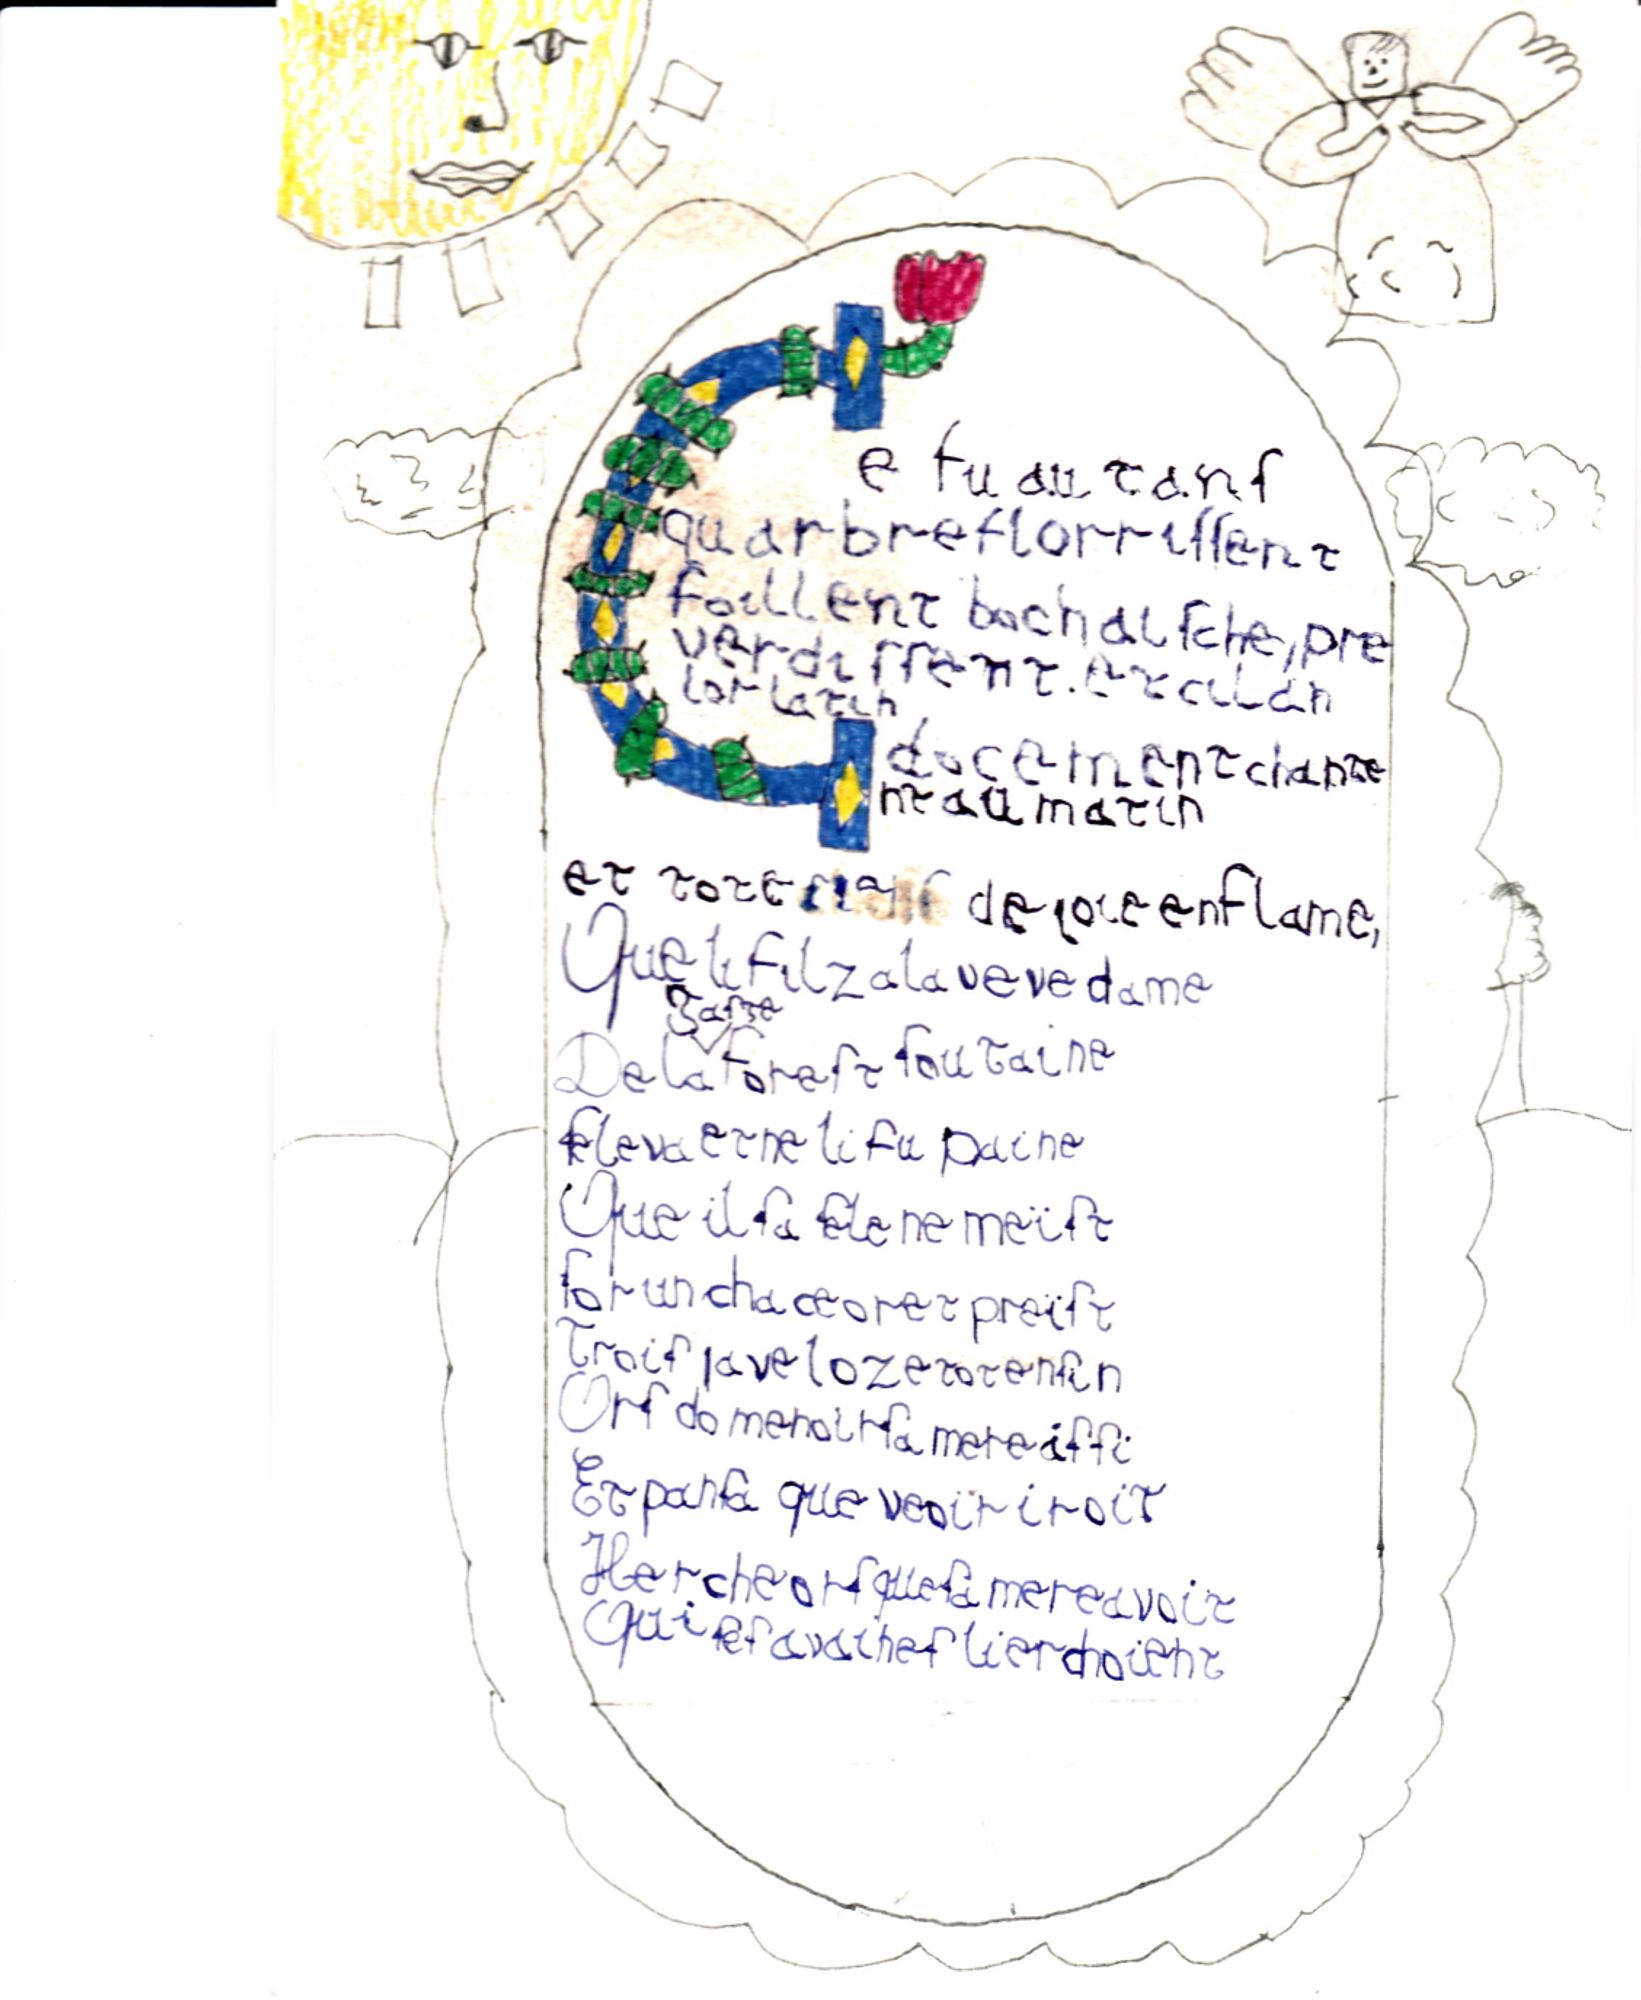 Ce fu au tanſ
qu arbre florriſſent
foillent bochaiſche, pre
verdiſſent. et cil an
lor latin
docement chante
nt au matin
et tote de joie enflame,
Que li filz a la veve dame
gaſte
De la foreſt ſoutaine
ſe leva et ne li fu paine
Que il ſa ſele ne meïſt
ſor un chaceor et preïſt
Troiſ javeloz et tot enſin
Orſ do menoir ſa mere iſſi
Et panſa que veoir iroit
Hercheorſ que ſa mere avoit
Qui ſeſ avaineſ li erchoient